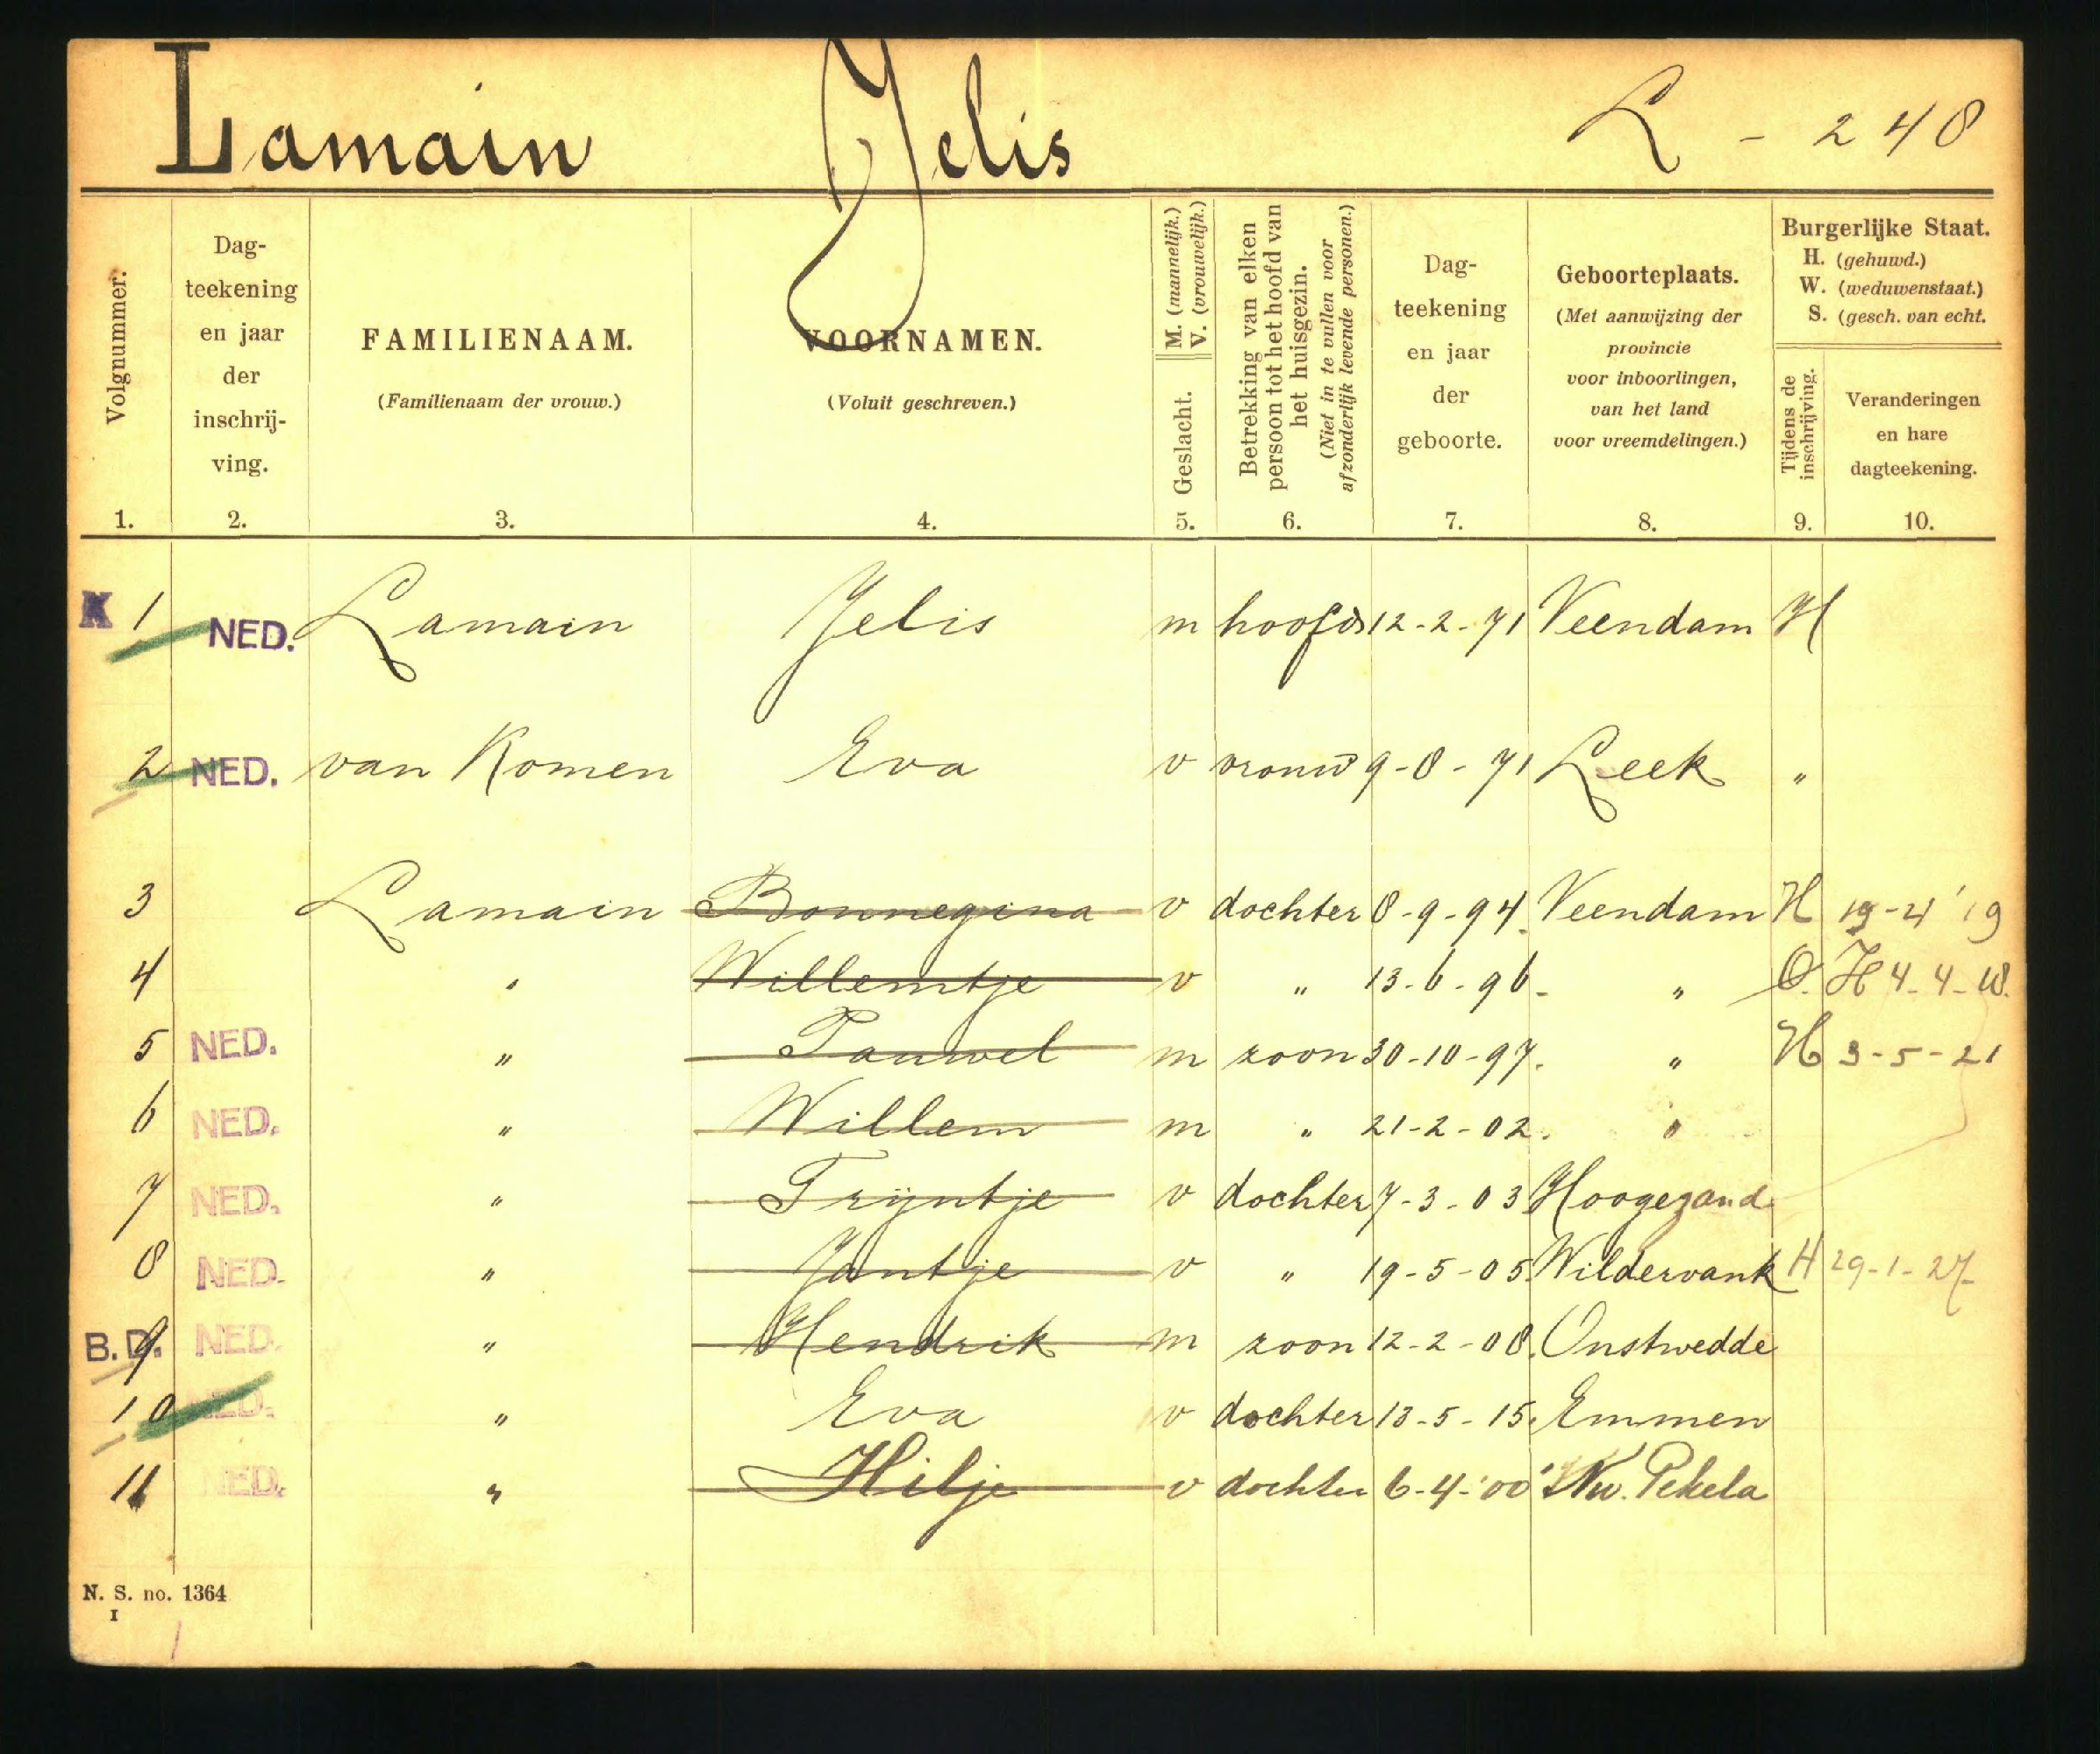 Lamain Jelis L - 248
Volgnummer. 1.
Dag-
teekening
en jaar
der
inschrij-
ving.
2.
FAMILIENAAM.
(Familienaam der vrouw.)
3.
VOORNAMEN.
(Voluit geschreven.)
4.
M. (mannelijk.)
V. (vrouwelijk.)
Geslacht.
5.
Betrekking van elken
persoon tot het hoofd van
het huisgezin.
(Niet in te vullen voor
afzonderlijk levende personen.)
6.
Dag-
teekening
en jaar
der
geboorte.
7.
Geboorteplaats.
(Met aanwijzing der
provincie
voor inboorlingen,
van het land
voor vreemdelingen.)
8.
Burgerlijke Staat.
H. (gehuwd.)
W. (weduwenstaat.)
S. (gesch. van echt.
Tijdens de
inschrijving.
9.
Veranderingen
en hare
dagteekening.
10.
K 1 NED. Lamain Jelis m hoofd 12-2-71 Veendam H
2 NED. van Komen Eva v vrouw 9-8-71 Leek "
3 Lamain Bonnegina v dochter 8-9-94. Veendam H 19-4'19
4 " Willemtje v " 13-6-96- " O. H 4-4-18.
5 NED. " Pauwel m zoon 30-10-97. " H 3-5-21
6 NED. " Willem m " 21-2-02. "
7 NED. " Trijntje v dochter 7-3-03 Hoogezand
8 NED. " Jantje v " 19-5-05. Wildervank H 29-1-27
B.D. 9 NED. " Hendrik m zoon 12-2-08. Onstwedde
10 NED. " Eva v dochter 13-5-15. Emmen
11 NED. " Hilje v dochter 6-4-'00 Nw. Pekela
N. S. no. 1364
I